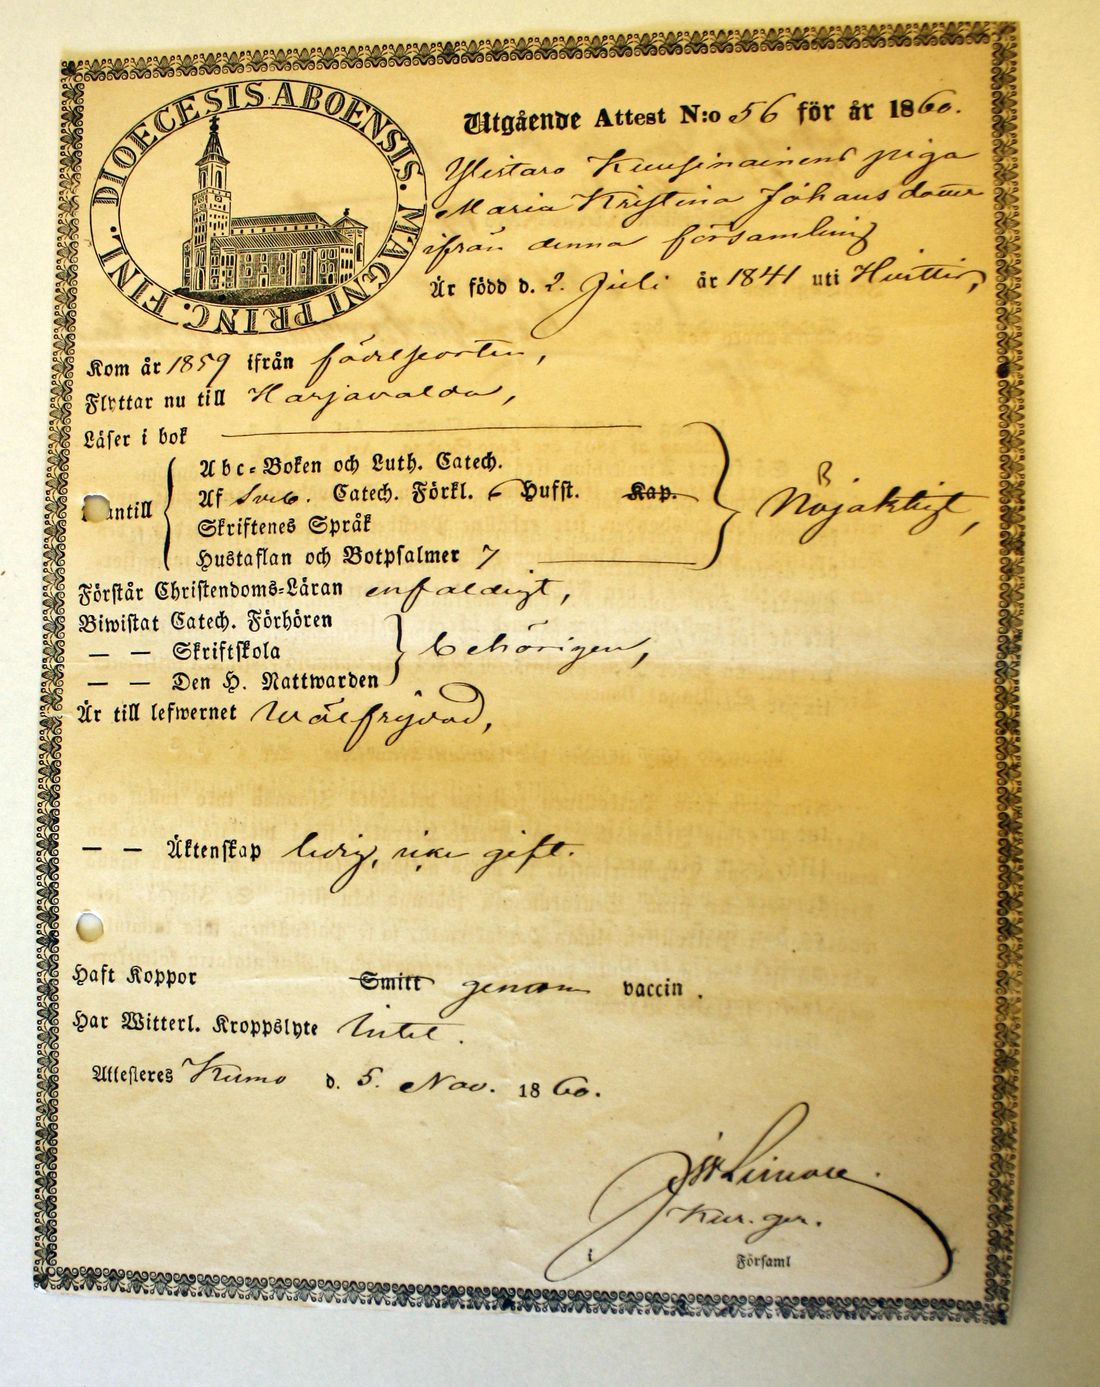 DIOECESIS ABOENSIS. MAGNI PRINC. FINL.
Utgående Attest N:o 56 för år 1860.
Ylistaro Kuusinainens piga
Maria Kristina Johansdotter
ifrån denna församling
Är född d. 2. Juli år 1841 uti Huittis,
Kom år 1859 ifrån födelseorten,
Flyttar nu till Harjavalda,
Läser i bok
antill
Abc-Boken och Luth. Catech.
Af Sveb. Catech. Förkl. 6 Hufst. Kap.
Skriftenes Språk
Hustaflan och Botpsalmer 7
Nöjaktigt,
Förstår Christendoms-Läran enfaldigt,
Biwistat Catech. Förhören
— — Skriftskola
— — Den H. Nattwarden
behörigen,
Är till lefwernet wälfrejdad,
— — Äktenskap ledig, icke gift.
Haft Koppor Smitt genom vaccin.
Har Witterl. Kroppslyte Intet.
Attesteres Kumo d. 5. Nov. 1860.
i Församl